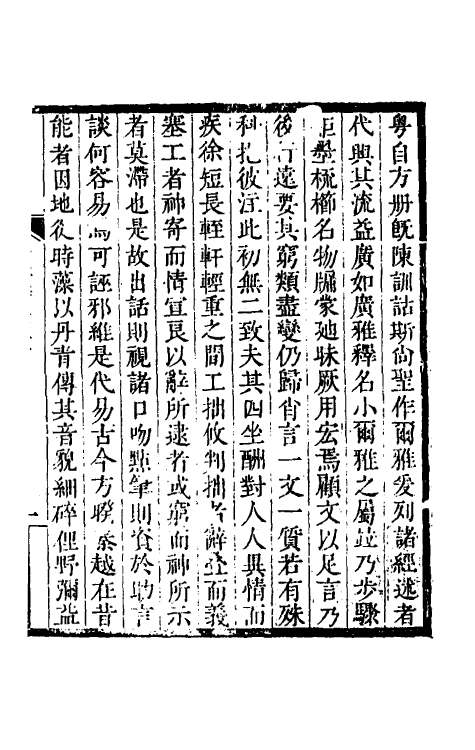 粤自方册既陳訓詁斯尚聖作爾雅爰列諸經述者
代興其流益廣如廣雅釋名小爾雅之屬竝乃步驟
櫛名物牖蒙廸昧厥用宏焉顧文以足言乃
後行遠要其窮類盡變仍歸省言一文一質若有殊
科扎彼注此初無二致夫其四坐酬對人人異情而
疾徐短長輊軒輕重之間工拙攸判拙者辭登而義
塞工者神寄而情宣良以辭所逮者或窮而神所示
者莫滯也是故出話則視諸口吻點筆則資於助言
談何容易而可誣邪維是代易古今方暌秦越在昔
能者因地從時藻以丹青傳其音貌細碎俚野彌益